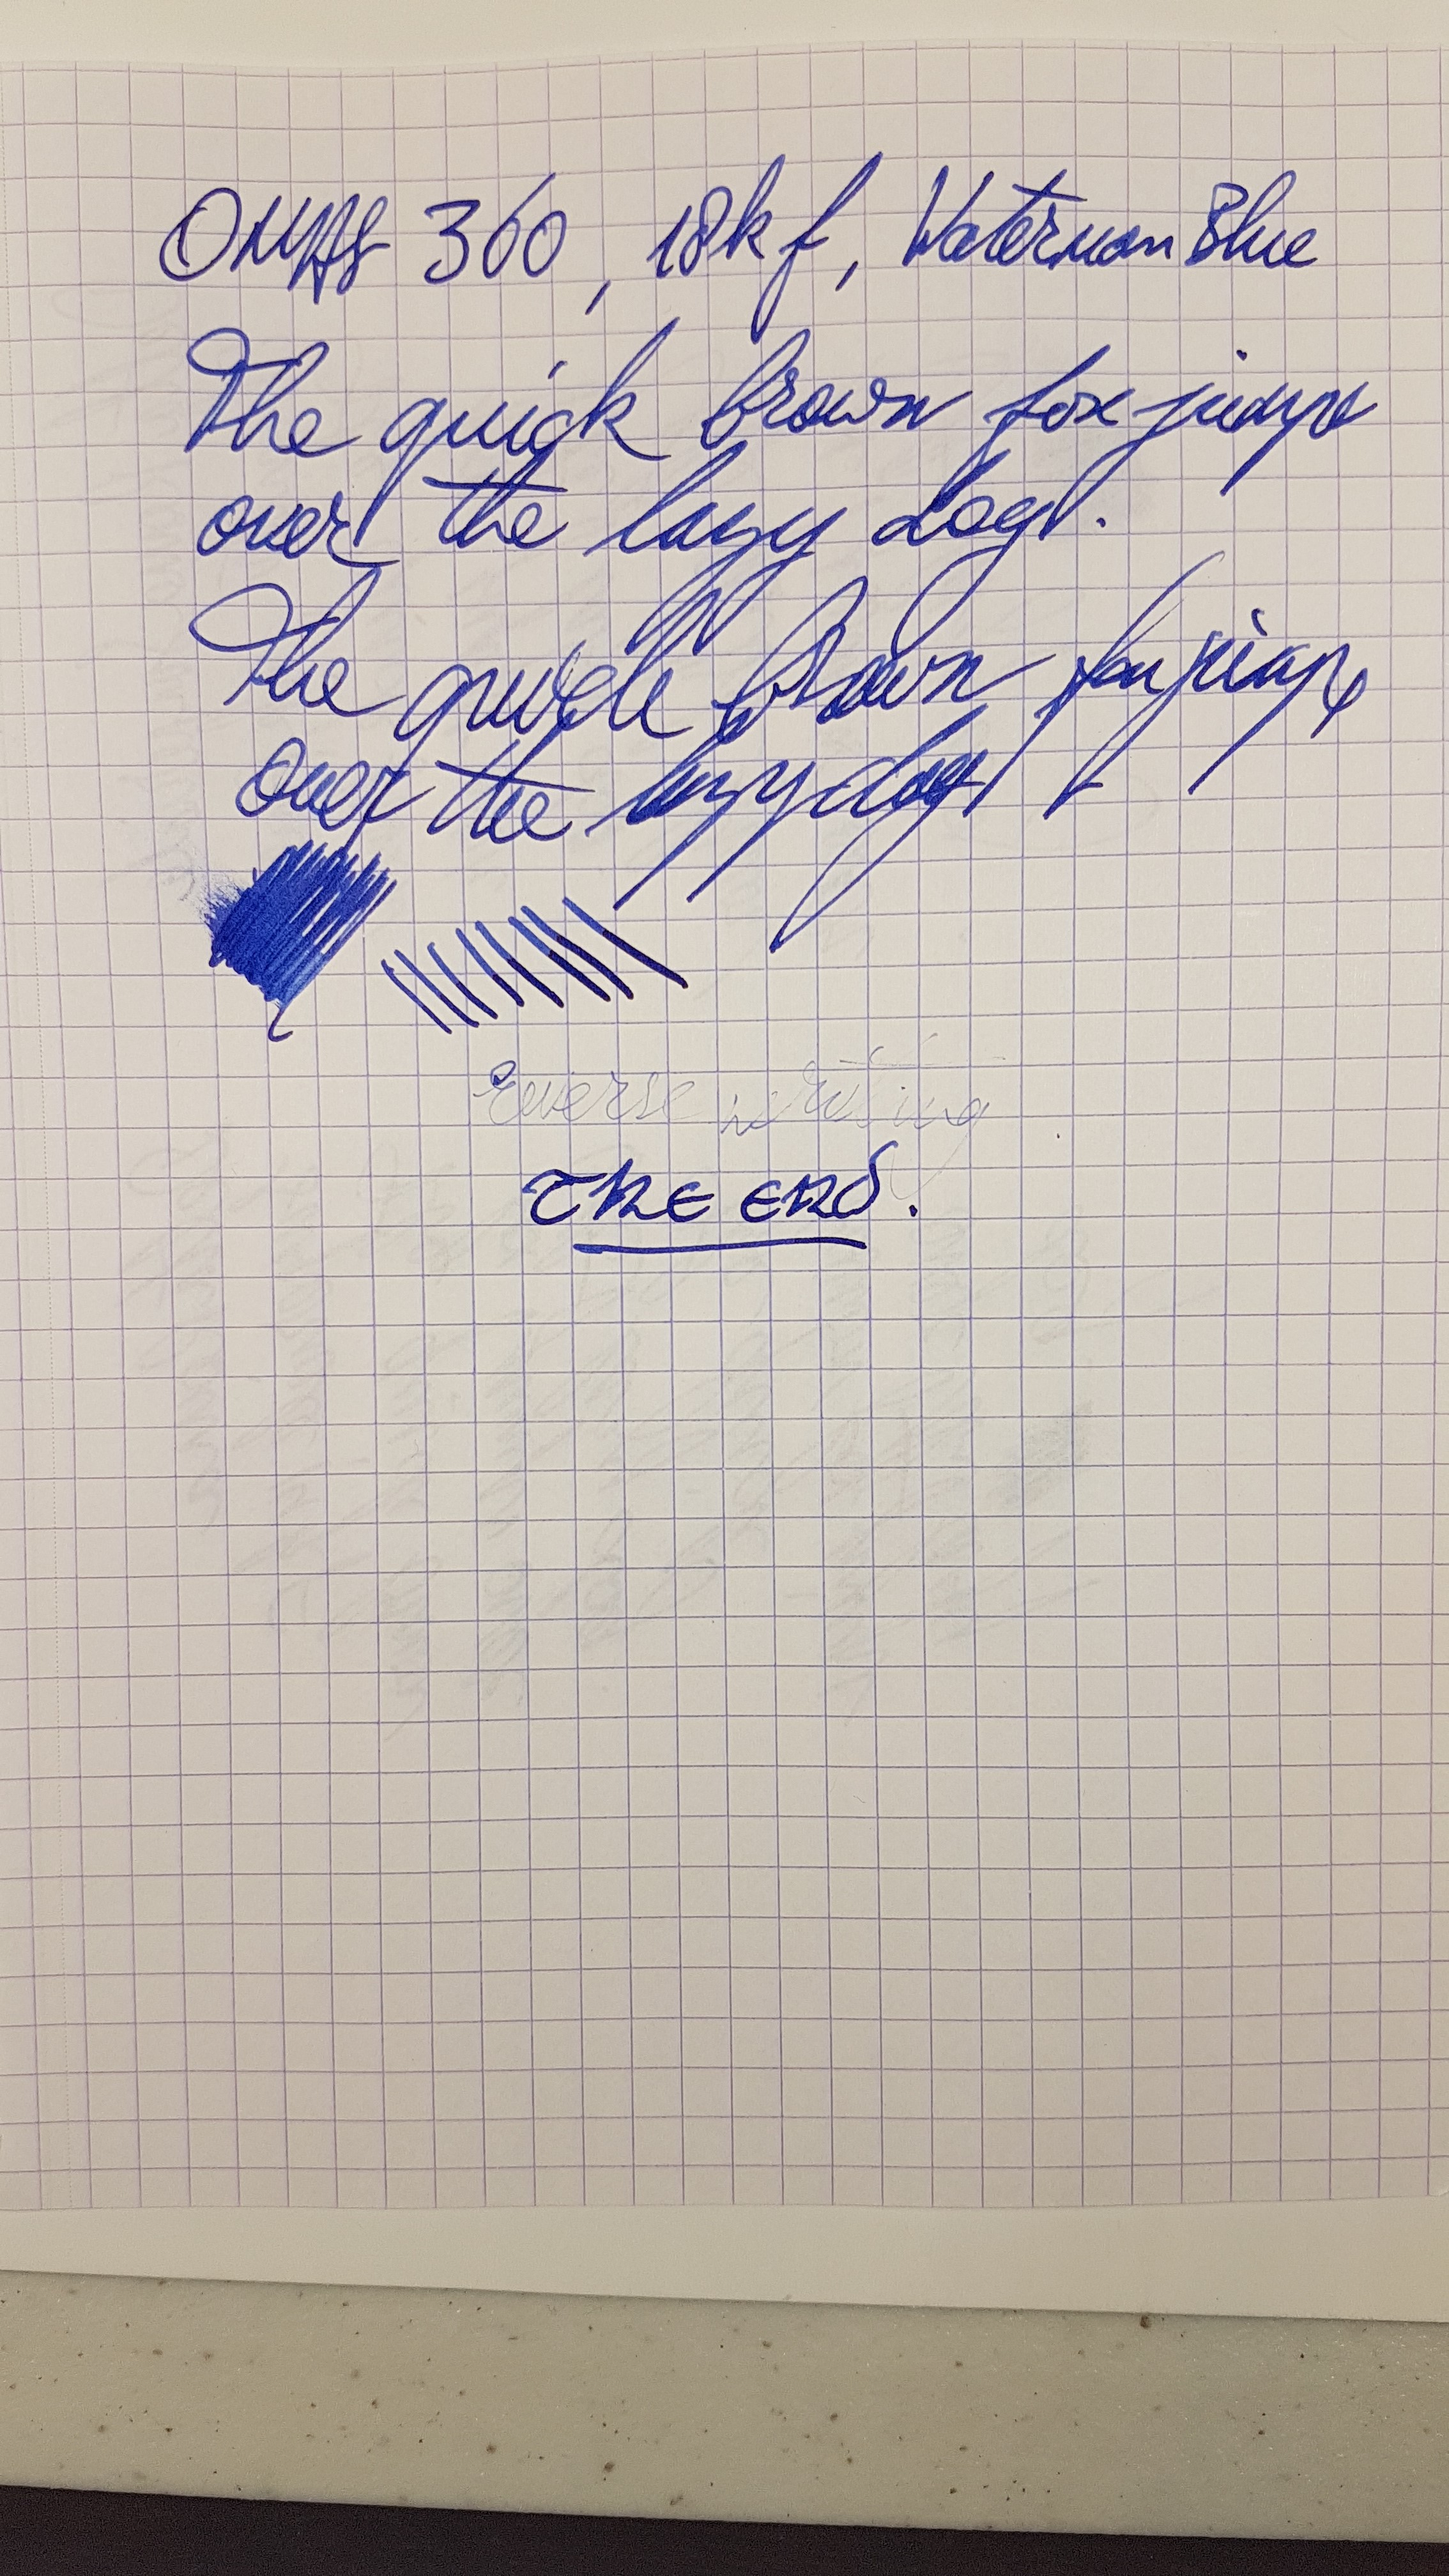 OMAS 360, 18k f, Waterman Blue
The quick brown fox jumps
over the lazy dog.
The quick brown fox jumps
over the lazy dog
reverse writing
THE END.